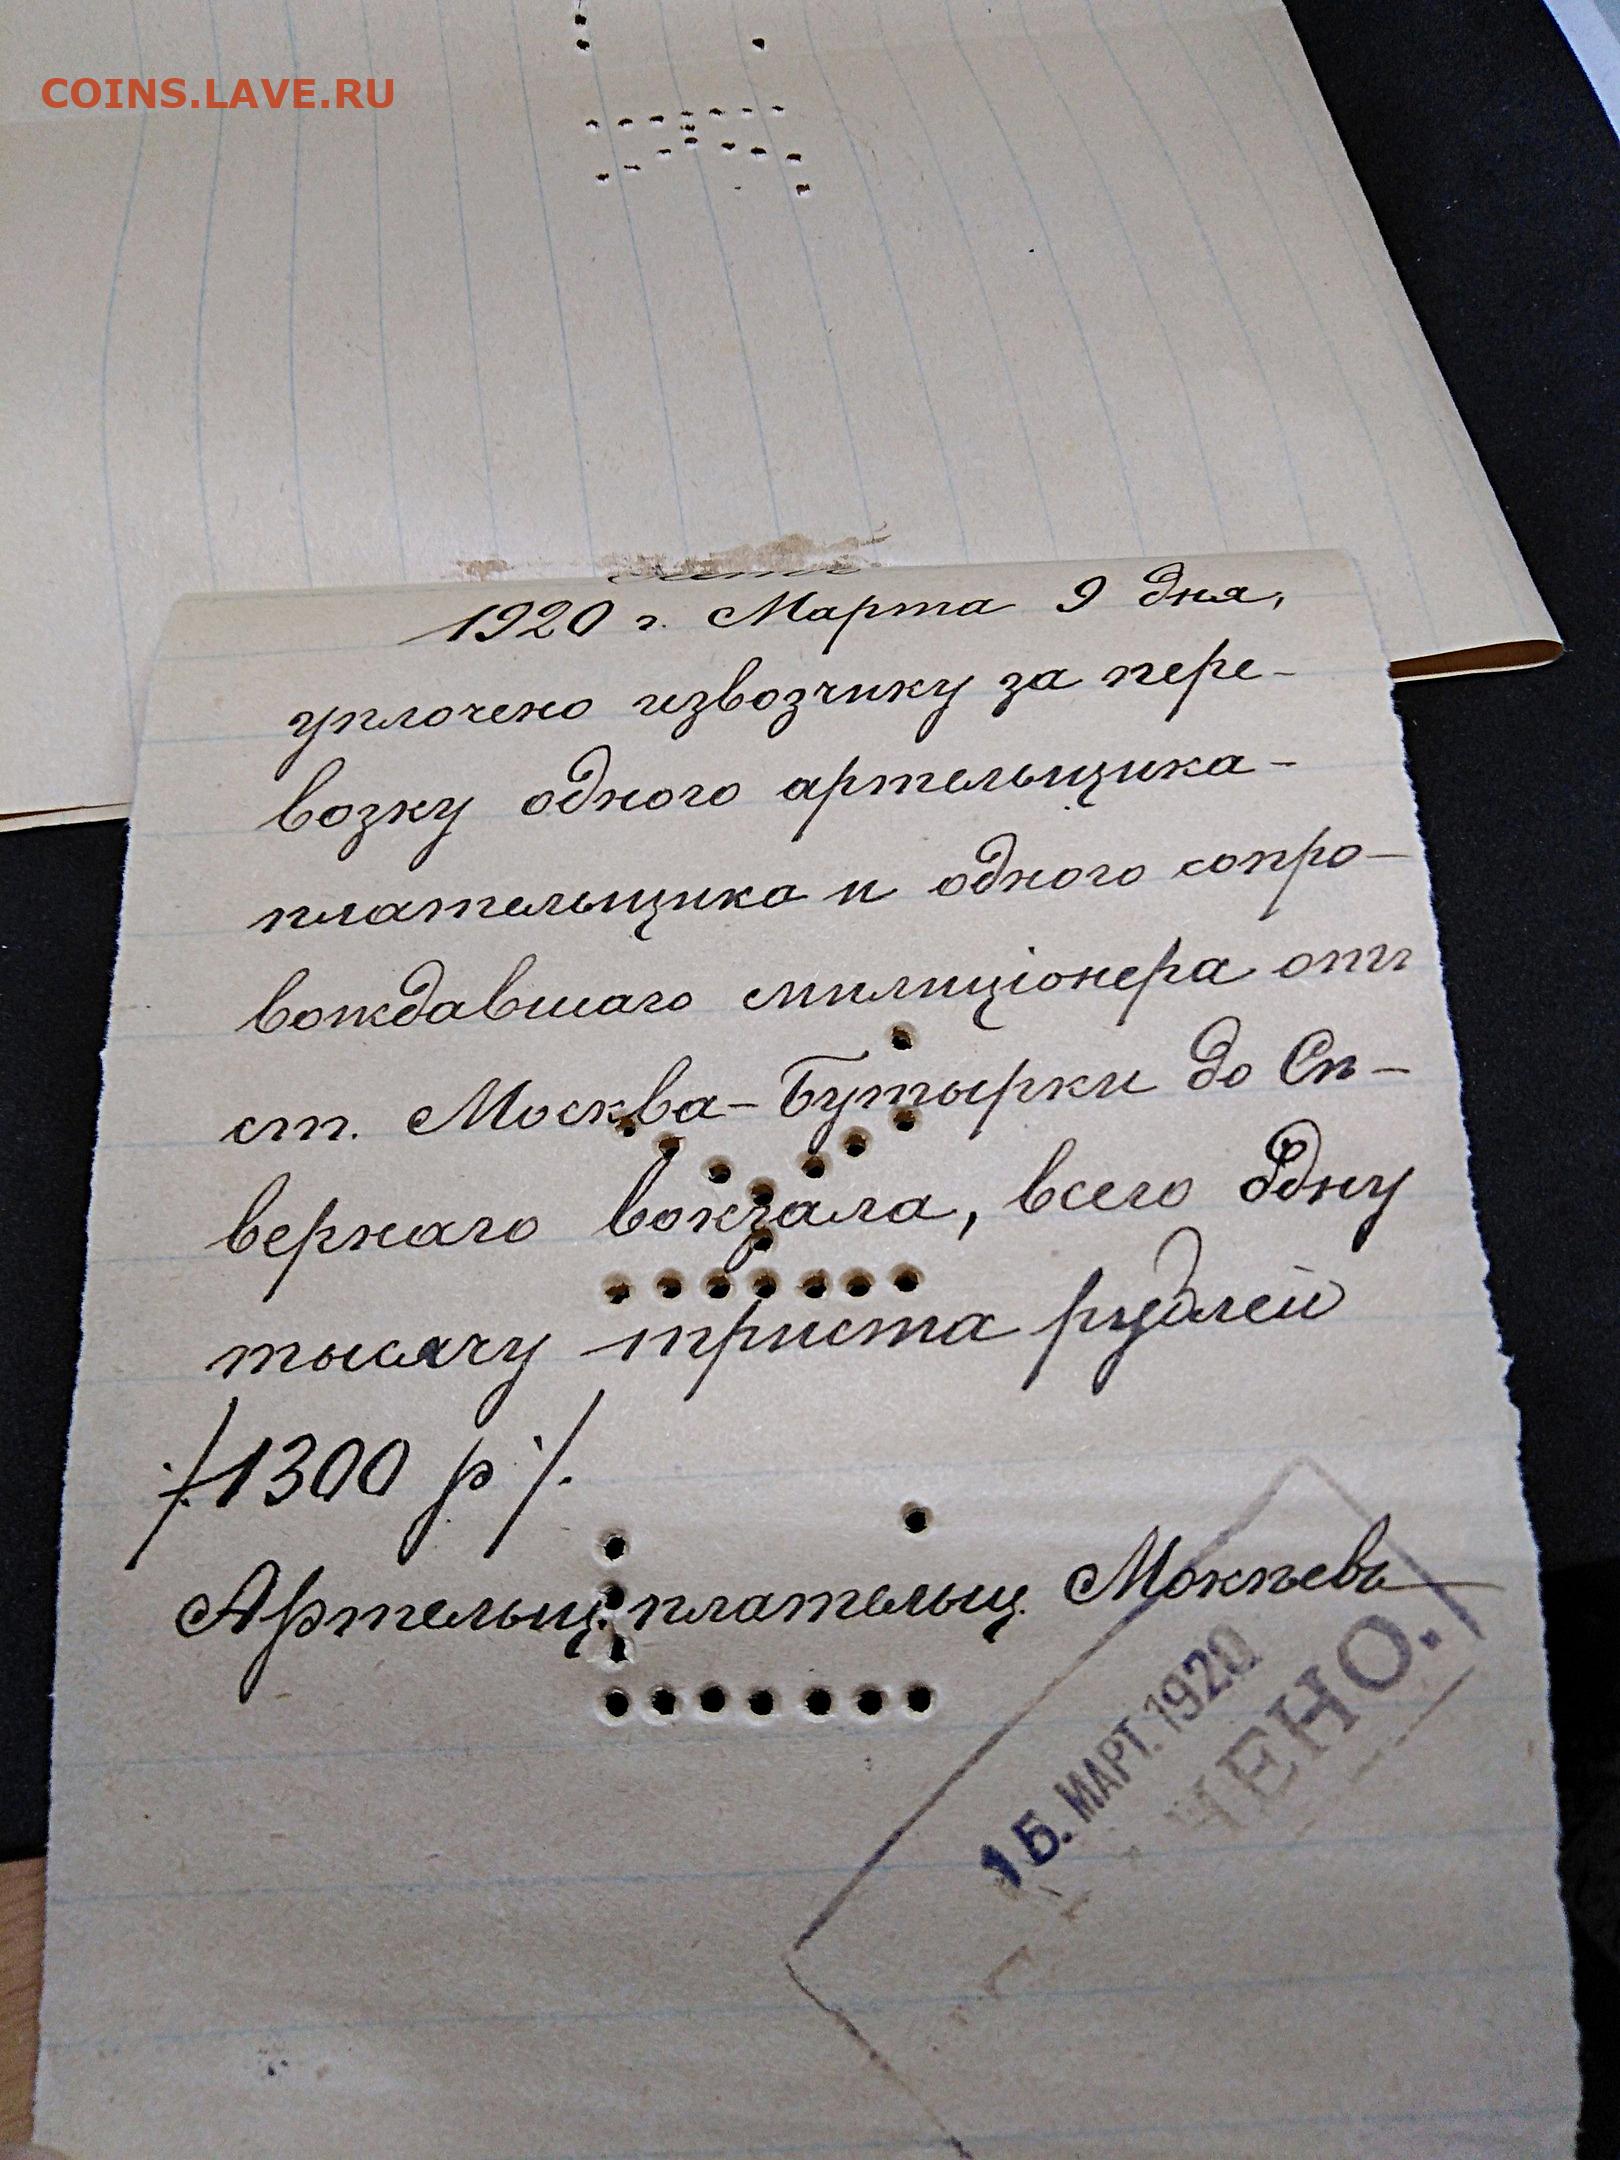 COINS.LAVE.RU
1920 г. Марта 9 дня,
уплочено извозчику за пере-
возку одного артельщика-
плательщика и одного сопро-
вождавшаго милиціонера отъ
ст. Москва-Бутырки до Сѣ-
вернаго вокзала, всего Одну
тысячу триста рублей
/1300 р./.
Артельщ. плательщ. Мокѣевъ
15. МАРТ. 1920
ЧЕНО.